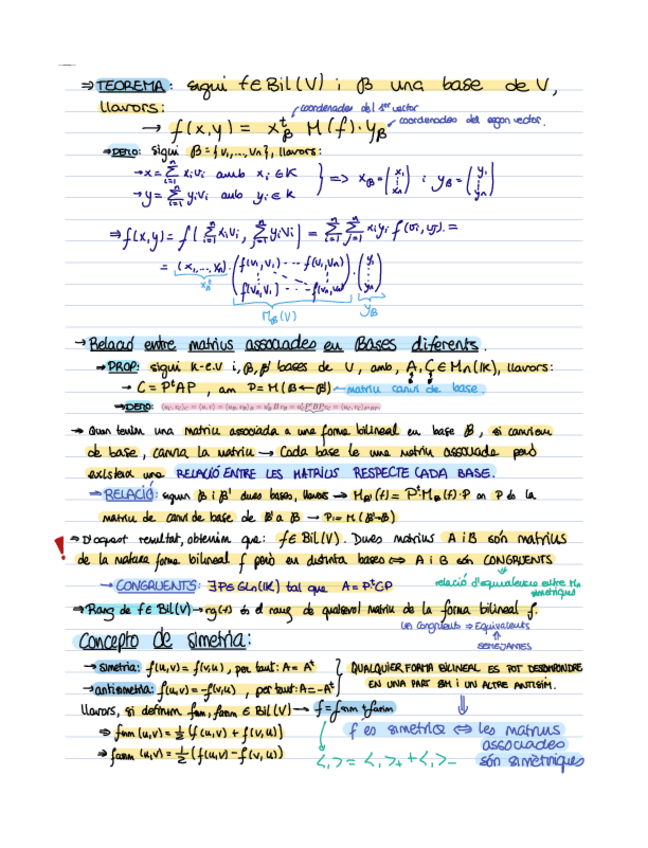 ⇒ TEOREMA: sigui f∈Bil(V) i β una base de V,
llavors:
coordenades del 1er vector
→ f(x,y) = xᵗβ M(f)·yβ coordenades del segon vector.
⇒ DEMO: Sigui β = {v₁,...,vₙ}, llavors:
→ x = Σ xᵢvᵢ amb xᵢ ∈ K
→ y = Σ yᵢvᵢ amb yᵢ ∈ K
} => xβ = (x₁ ⋮ xₙ) i yβ = (y₁ ⋮ yₙ)
⇒ f(x,y) = f(Σ xᵢvᵢ, Σ yᵢvᵢ) = Σ Σ xᵢyⱼ f(vᵢ,vⱼ). =
= (x₁,...,xₙ)·(f(v₁,v₁) --- f(v₁,vₙ) ⋮ f(vₙ,v₁) --- f(vₙ,vₙ))·(y₁ ⋮ yₙ)
Mβ(V) yβ
→ Relació entre matrius associades en Bases diferents.
→ PROP: sigui K-e.v i, β, β' bases de V, amb, A, C ∈ Mn(K), llavors:
→ C = PᵗAP, am P = M(β←β') ← matriu canvi de base.
→ DEMO:
→ Quan tenim una matriu associada a una forma bilineal en base β, si canviem
de base, canvia la matriu → Cada base te una matriu associada però
existeix una RELACIÓ ENTRE LES MATRIUS RESPECTE CADA BASE.
→ RELACIÓ: siguin β i β' dues bases, llavors → Mβ'(f) = Pᵗ·Mβ(f)·P on P és la
matriu de canvi de base de β' a β → P = M(β'→β)
! → D'aquest resultat, obtenim que: f∈Bil(V). Dues matrius A i B són matrius
de la mateixa forma bilineal f però en distinta bases ⇔ A i B són CONGRUENTS
→ CONGRUENTS: ∃P∈GLn(K) tal que A = PᵗCP relació d'equivalencia entre Mn
simètriques
⇒ Rang de f∈Bil(V) → rg(f) és el rang de qualsevol matriu de la forma bilineal f.
les congruents ⇒ Equivalents
⇑
SEMEJANTES
Concepto de simetria:
→ simetria: f(u,v) = f(v,u), per tant: A = Aᵗ
→ antisimetria: f(u,v) = -f(v,u), per tant: A = -Aᵗ
QUALQUIER FORMA BILINEAL ES POT DESCOMPONDRE
EN UNA PART SIM I UN ALTRE ANTISIM.
Llavors, si definim fsim, fasim ∈ Bil(V) → f = fsim + fasim
⇒ fsim(u,v) = ½(f(u,v) + f(v,u))
⇒ fasim(u,v) = ½(f(u,v) - f(v,u))
f és simètrica ⇔ les matrius
associades
són simètriques
<,> = <,>₊ + <,>₋